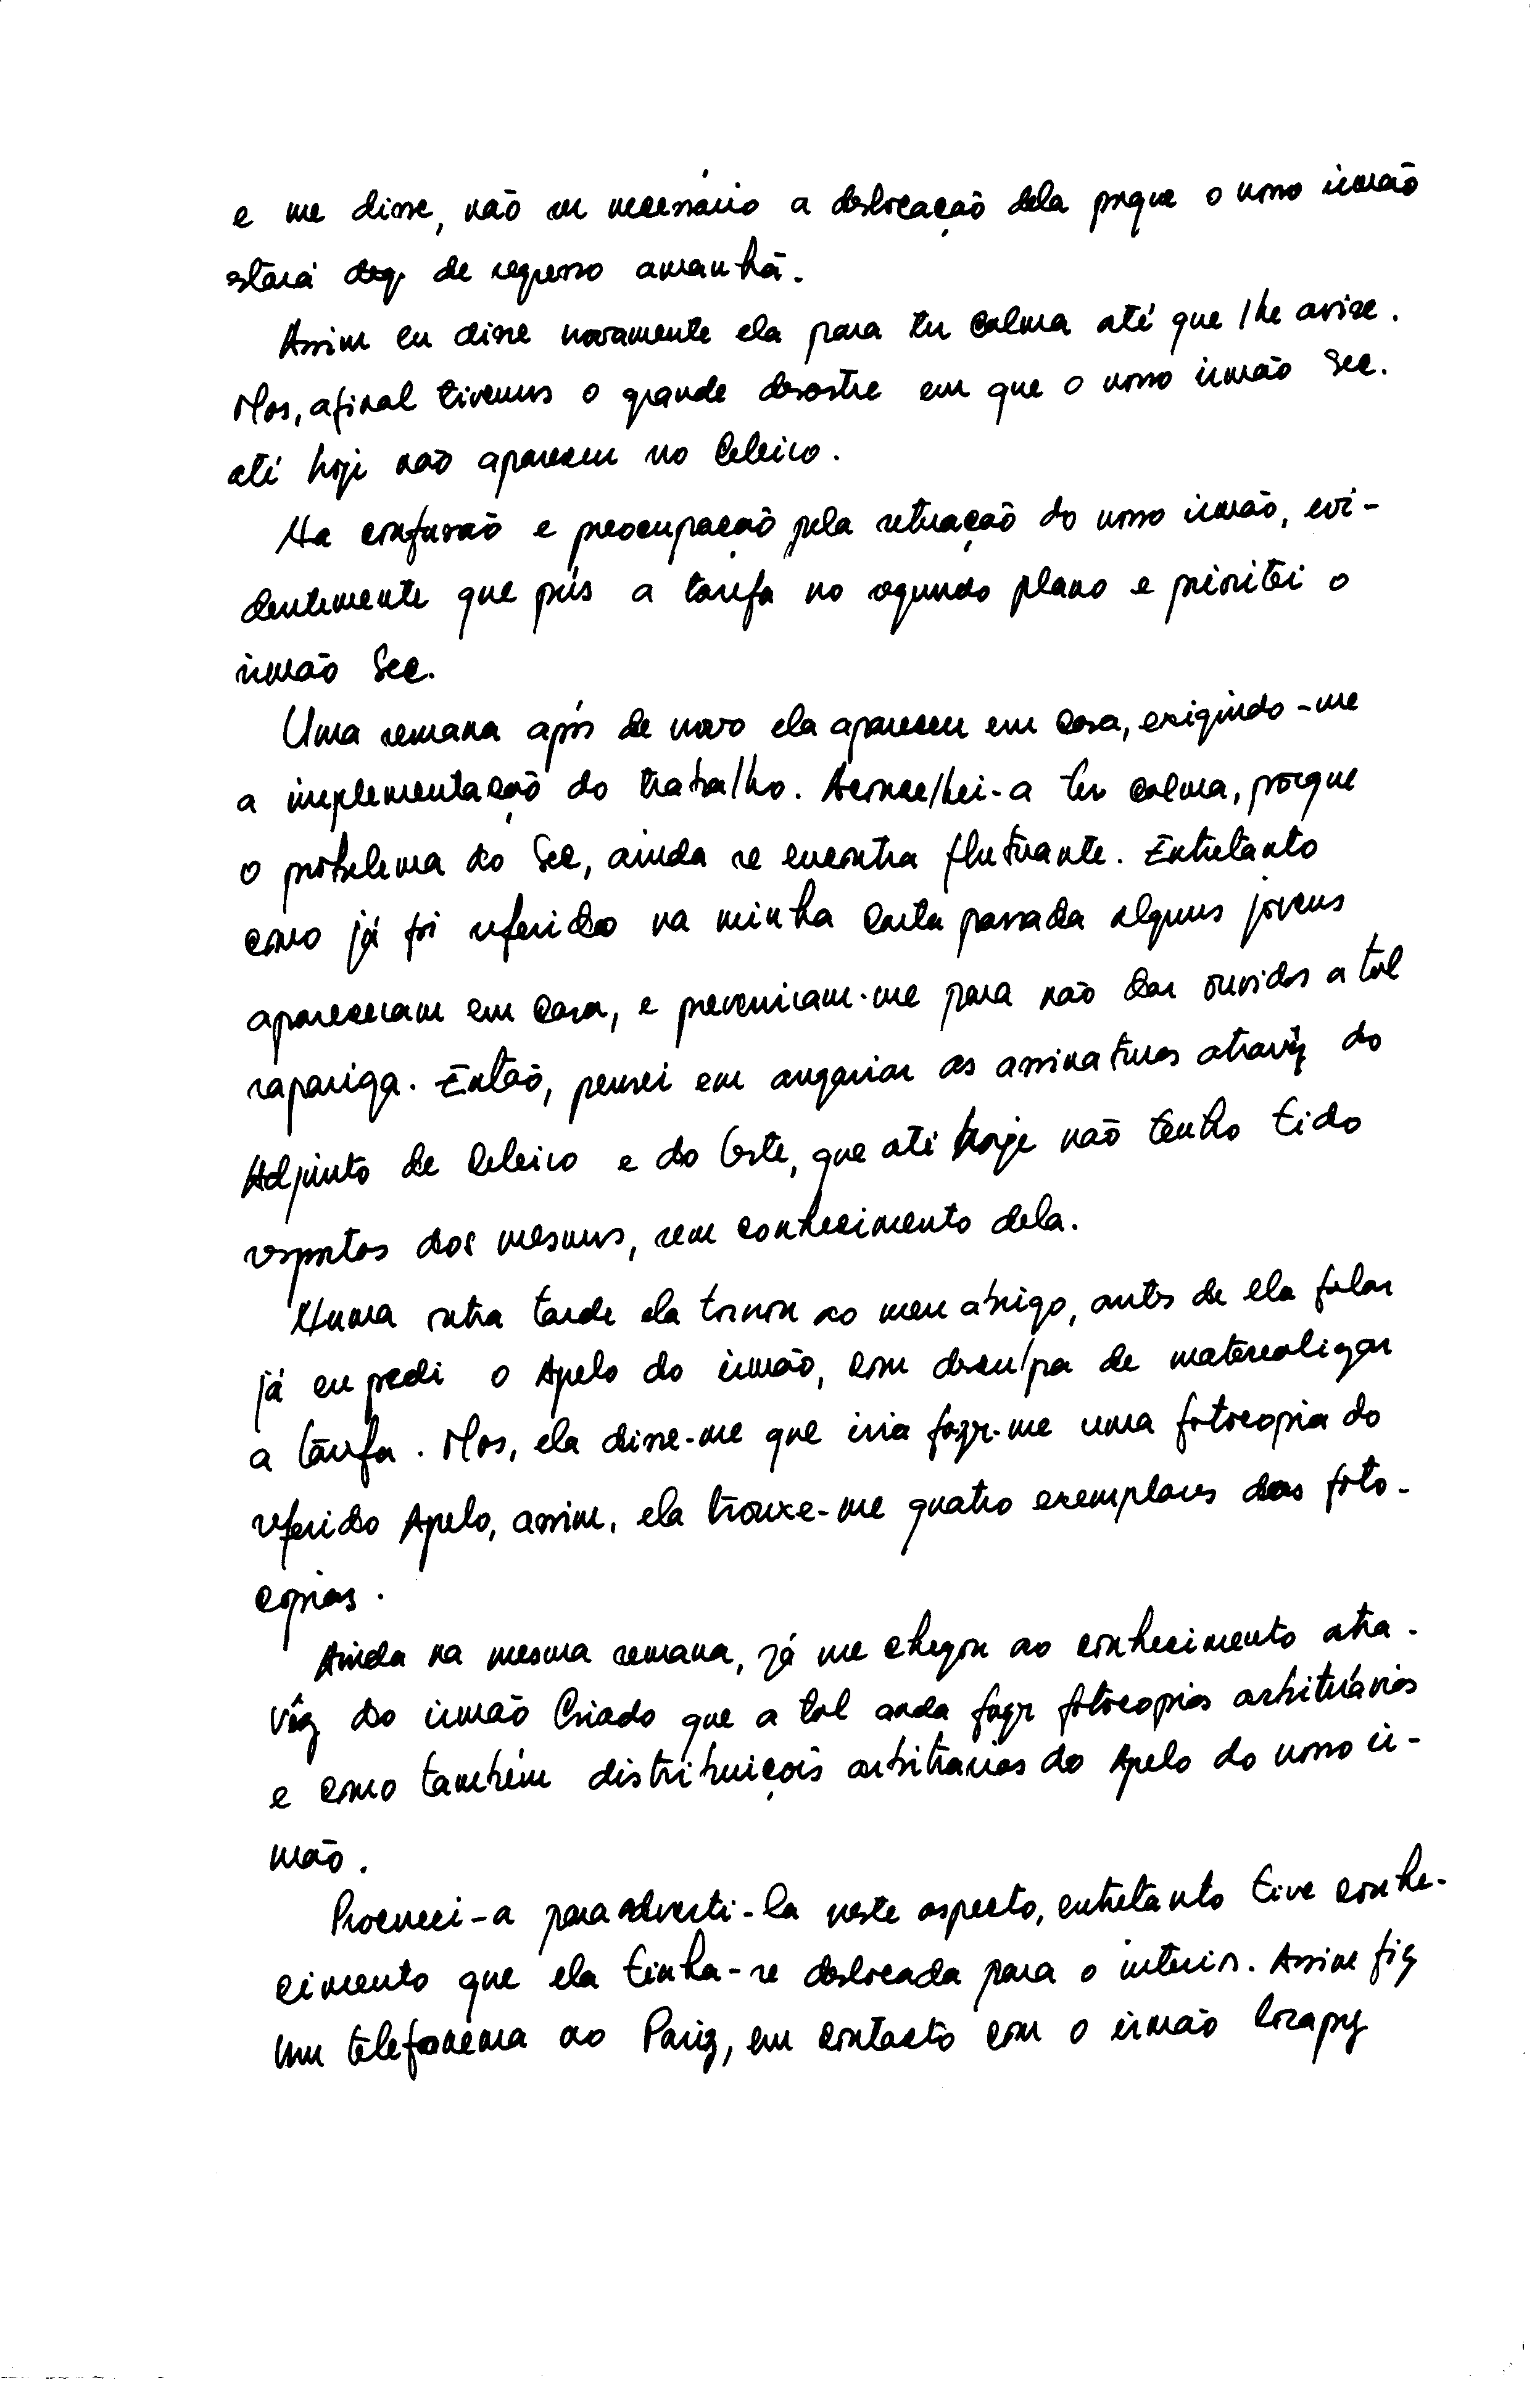 e me disse, não ser necessário a deslocação dela porque o nosso irmão
estará de regresso amanhã.
Assim eu disse novamente ela para ter calma até que lhe avise.
Mas, afinal tivemos o grande desastre em que o nosso irmão Sec.
até hoje não apareceu no Celeiro.
Na confusão e preocupação pela situação do nosso irmão, evi-
dentemente que pús a tarefa no segundo plano e prioritei o
irmão Sec.
Uma semana após de novo ela apareceu em casa, exigindo-me
a implementação do trabalho. Aconselhei-a ter calma, porque
o problema do Sec, ainda se encontra flutuante. Entretanto
como já foi referido na minha carta passada alguns jovens
apareceram em casa, e preveniram-me para não dar ouvidos a tal
rapariga. Então, pensei em angariar as assinaturas atravéz do
Adjunto de Celeiro e do Leste, que até hoje não tenho tido
respostas dos mesmos, sem conhecimento dela.
Numa outra tarde ela tornou ao meu abrigo, antes de ela falar
já eu pedi o Apelo do irmão, com desculpa de materealizar
a tarefa. Mas, ela disse-me que iria fazer-me uma fotocopia do
referido Apelo, assim, ela trouxe-me quatro exemplares das foto-
copias.
Ainda na mesma semana, já me chegou ao conhecimento atra-
véz do irmão Criado que a tal anda fazer fotocopias arbitrárias
e como também distribuiçois arbitrarias do Apelo do nosso ir-
mão.
Procurei-a para adverti-la neste aspecto, entretanto tive conhe-
cimento que ela tinha-se deslocada para o interior. Assim fiz
um telefonema ao Pariz, em contacto com o irmão